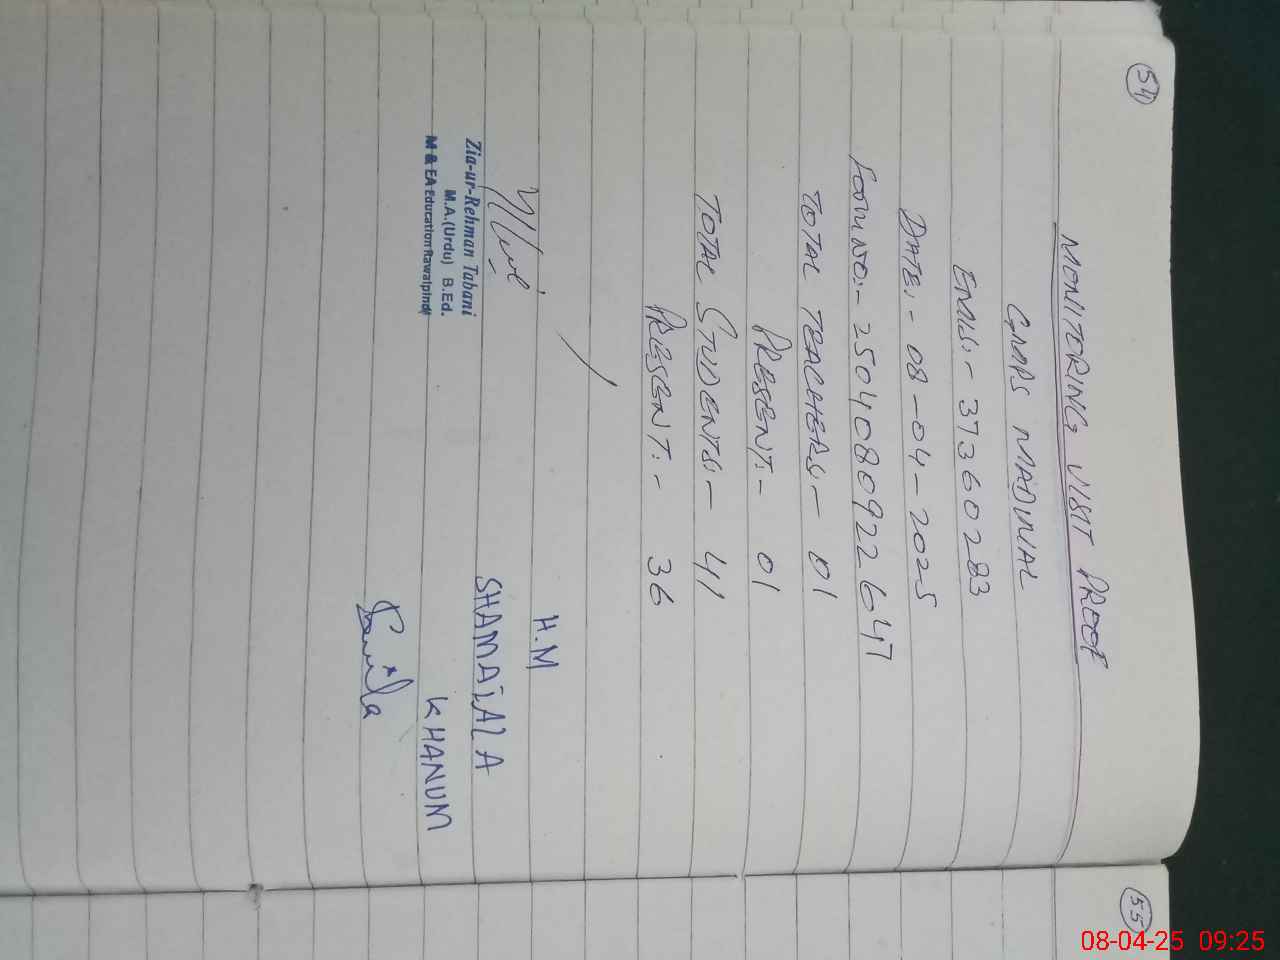 54
MONITORING VISIT PROOF
GMPS MADINAL
EMIS:- 37360283
DATE:- 08-04-2025
FORM NO:- 250408092264T
TOTAL TEACHERS:- 01
PRESENT:- 01
TOTAL STUDENTS:- 41
PRESENT:- 36
H.M
Zia-ur-Rehman Tabani
M.A.(Urdu) B.Ed.
M & EA Education Rawalpindi
SHAMAILA
KHANUM
55
08-04-25 09:25